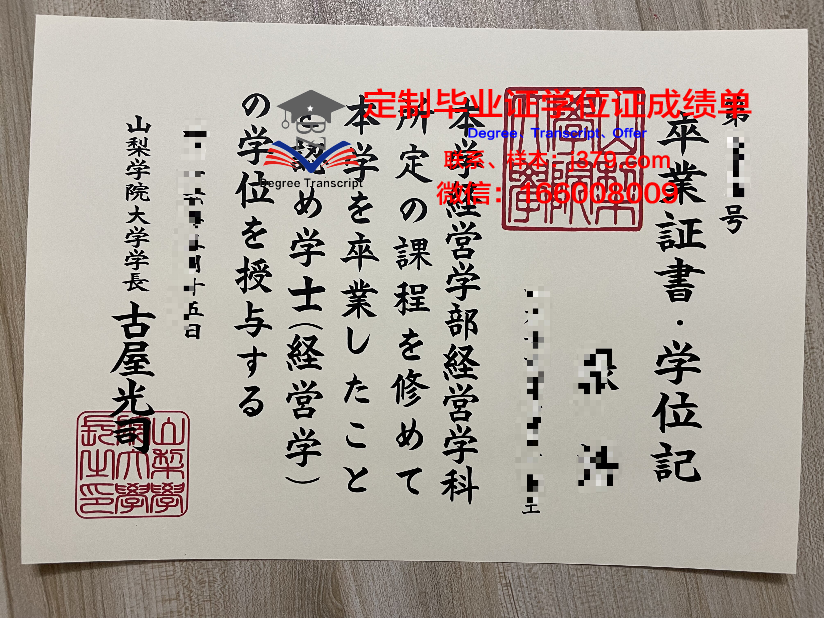 第
号
卒業証書・学位記
本学経営学部経営学科
所定の課程を修めて
本学を卒業したこと
を認め学士(経営学)
の学位を授与する
日
山梨学院大学学長
古屋光司
定制毕业证学位证成绩单
Degree、Transcript、Offer
微信:166008009
Degree Transcript